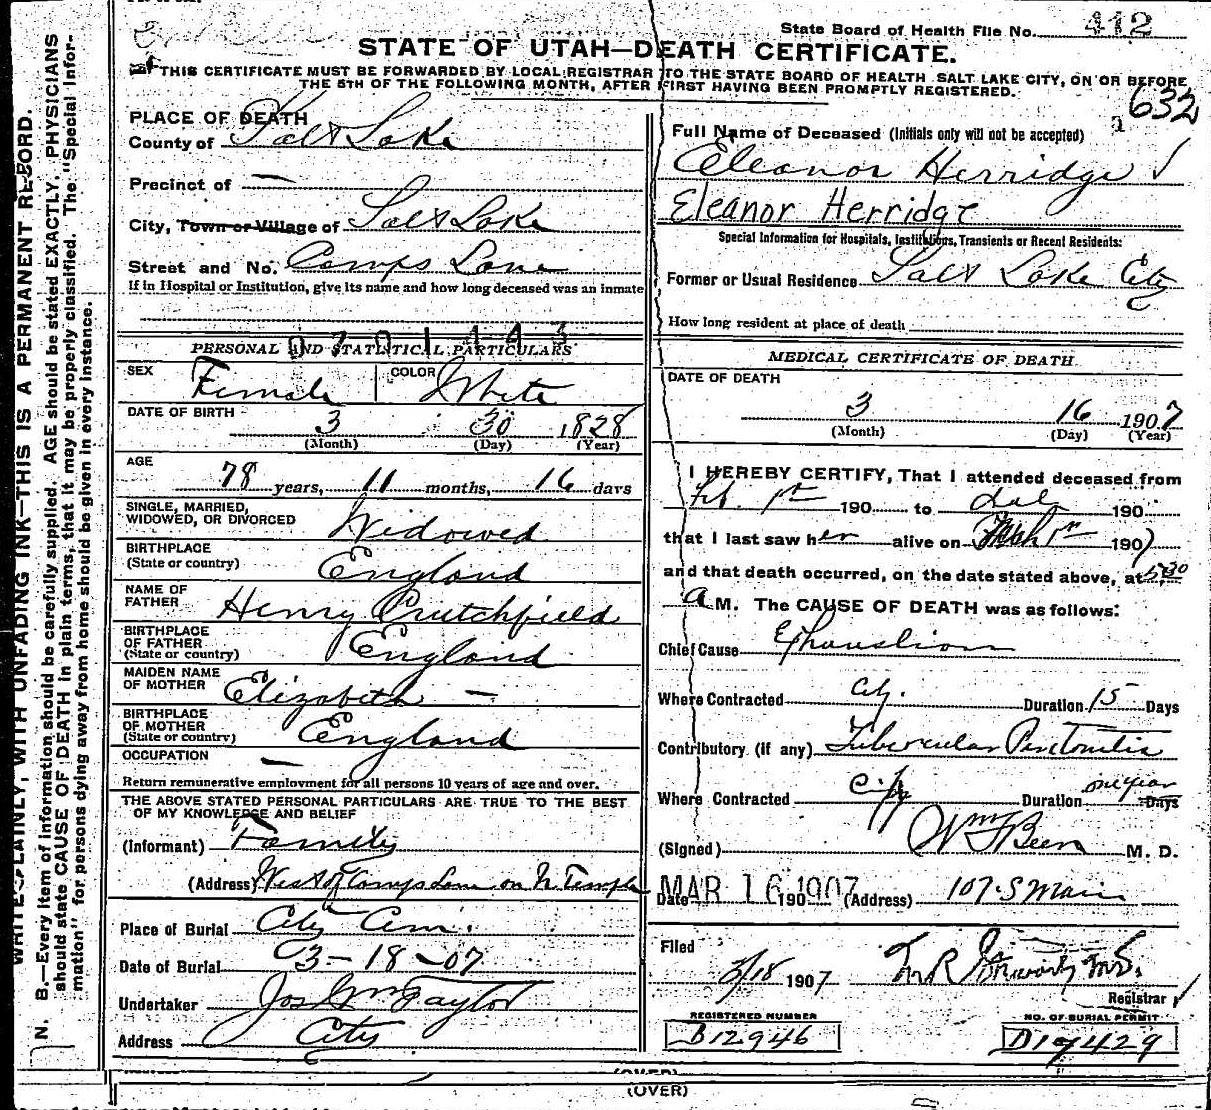 State Board of Health File No. 412
STATE OF UTAH—DEATH CERTIFICATE.
THIS CERTIFICATE MUST BE FORWARDED BY LOCAL REGISTRAR TO THE STATE BOARD OF HEALTH SALT LAKE CITY, ON OR BEFORE
THE 5TH OF THE FOLLOWING MONTH, AFTER FIRST HAVING BEEN PROMPTLY REGISTERED.
632
PLACE OF DEATH
County of Salt Lake
Precinct of —
City, Town or Village of Salt Lake
Street and No. Camps Lane
If in Hospital or Institution, give its name and how long deceased was an inmate
0701443
PERSONAL AND STATISTICAL PARTICULARS
SEX Female COLOR White
DATE OF BIRTH
3 30 1828
(Month) (Day) (Year)
AGE
78 years, 11 months, 16 days
SINGLE, MARRIED,
WIDOWED, OR DIVORCED Widowed
BIRTHPLACE
(State or country) England
NAME OF
FATHER Henry Crutchfield
BIRTHPLACE
OF FATHER
(State or country) England
MAIDEN NAME
OF MOTHER Elizabeth —
BIRTHPLACE
OF MOTHER
(State or country) England
OCCUPATION —
Return remunerative employment for all persons 10 years of age and over.
THE ABOVE STATED PERSONAL PARTICULARS ARE TRUE TO THE BEST
OF MY KNOWLEDGE AND BELIEF
(Informant) Family
(Address) West of Camps Lane on N. Temple
Place of Burial City Cem.
Date of Burial 3-18-07
Undertaker Jos Wm Taylor
Address City
Full Name of Deceased (Initials only will not be accepted)
Eleanor Herridge
Eleanor Herridge
Special Information for Hospitals, Institutions, Transients or Recent Residents:
Former or Usual Residence Salt Lake City
How long resident at place of death
MEDICAL CERTIFICATE OF DEATH
DATE OF DEATH
3 16 1907
(Month) (Day) (Year)
I HEREBY CERTIFY, That I attended deceased from
Feb. 1st 190 to date 190
that I last saw her alive on 1907
and that death occurred, on the date stated above, at 5:30
a M. The CAUSE OF DEATH was as follows:
Chief Cause Exhaustion
Where Contracted City. Duration 15 Days
Contributory (if any) Tubercular Peritonitis
Where Contracted City Duration one year Days
(Signed) Wm F Beer M. D.
Date MAR 16 1907 190 (Address) 107 S Main
Filed
3/18 1907
Registrar
REGISTERED NUMBER
B12946
NO. OF BURIAL PERMIT
D17429
(OVER)
(OVER)
WRITE PLAINLY, WITH UNFADING INK—THIS IS A PERMANENT RECORD.
N. B.—Every item of information should be carefully supplied. AGE should be stated EXACTLY. PHYSICIANS
should state CAUSE OF DEATH in plain terms, that it may be properly classified. The "Special Infor-
mation" for persons dying away from home should be given in every instance.